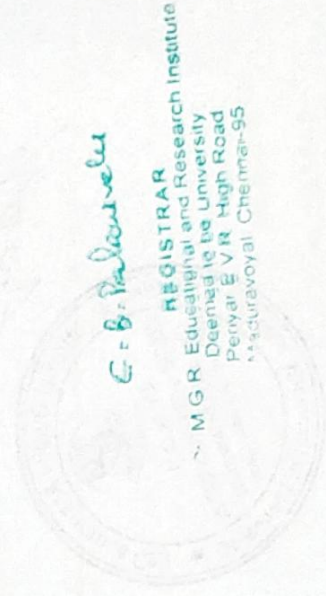 C. B. Palanivelu
REGISTRAR
M G R Educational and Research Institute
Deemed to be University
Periyar E V R High Road
Maduravoyal Chennai-95